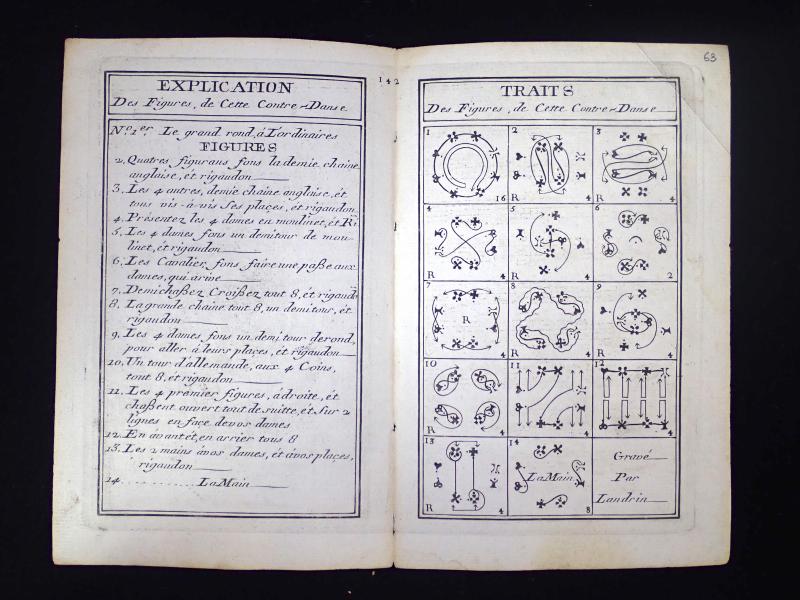 EXPLICATION
Des Figures, de Cette Contre-Danse
No. 1er. Le grand rond, á Lordinaires
FIGURES
2. Quatres figurans fons la demie chaine
anglaise, et rigaudon
3. Les 4 autres, demie chaine anglaise, et
tous vis-á-vis Ses plaçes, et rigaudon
4. Présentez les 4 dames en moulinet, et Ri
5. Les 4 dames fons un demitour de mou-
linet, et rigaudon
6. Les Cavalier, fons faire une paße aux
dames, qui arive
7. Demichaßez Croißez tout 8, et rigaudõ
8. La grande chaine tout 8, un demi tour, et
rigaudon
9. Les 4 dames fons un demi tour derond,
pour aller á leurs plaçes, et rigaudon
10. Un tour d'allemande, aux 4 Coins,
tout 8, et rigaudon
11. Les 4 premier figures, á droite, et
chaßent ouvert tout de suitte, et Sur 2
lignes en face de vos dames
12. En avant et, en arrier tous 8
13. Les 2 mains ávos dames, et ávos plaçes,
rigaudon
14. .......... La Main
142
63
TRAITS
Des Figures, de Cette Contre-Danse
1
16
2
R
4
3
4
4
R
4
5
R
4
6
2
7
R
4
8
R
4
9
R
4
10
R
4
11
4
12
4
13
R
4
14
La Main
8
Gravé
Par
Landrin